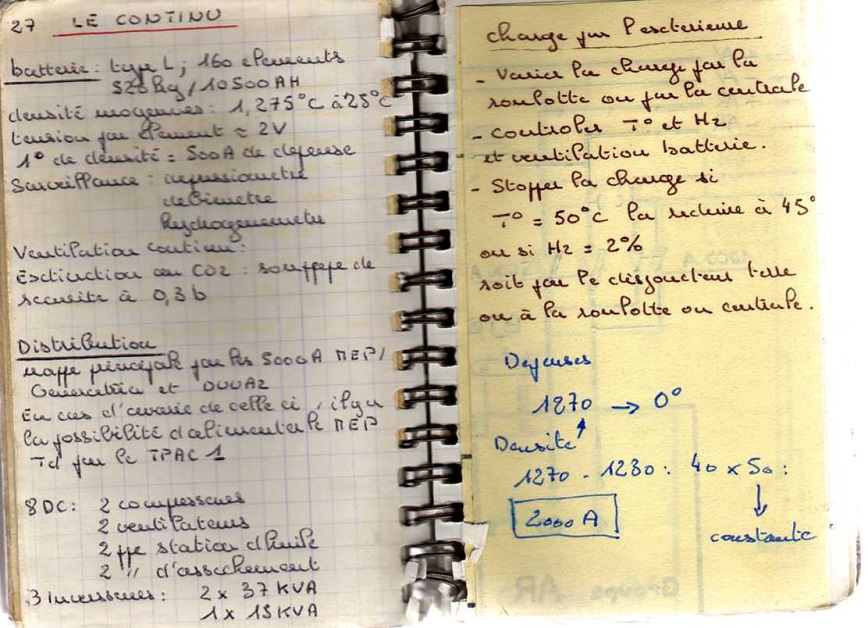 27 LE CONTINU
batterie : type L ; 160 elements
520kg / 10500AH
densité moyennes : 1,275°C à 25°C
tension par element ≈ 2V
1° de densité = 500A de defense
Surveillance : depressiometre
debimetre
hydrogenemetre
Ventilation continu :
Esctinction au CO2 : souppape de
securite à 0,3b
Distribution
nappe principale par les 5000A MEP/
Generatrice et
En cas d'avarie de celle ci, il y a
la possibilité d'alimenter le MEP
Td par le TPAC 1
8DC : 2 compesseurs
2 ventilateurs
2 ppe station d'huile
2 " d'assechement
3 Inverseurs : 2 x 37 KVA
1 x 15KVA
charge par l'escterieure
- Varier la charge par la
roulotte ou par la centrale
- controler T° et H2
et ventilation batterie.
- Stopper la charge si
T° = 50°C la reduire à 45°
ou si H2 = 2%
soit par le disjoncteur terre
ou à la roulotte ou centrale.
Defenses
1270 → 0°
Densite
1270 - 1230 : 40 x 50 :
2000 A
constante
Groupe AR